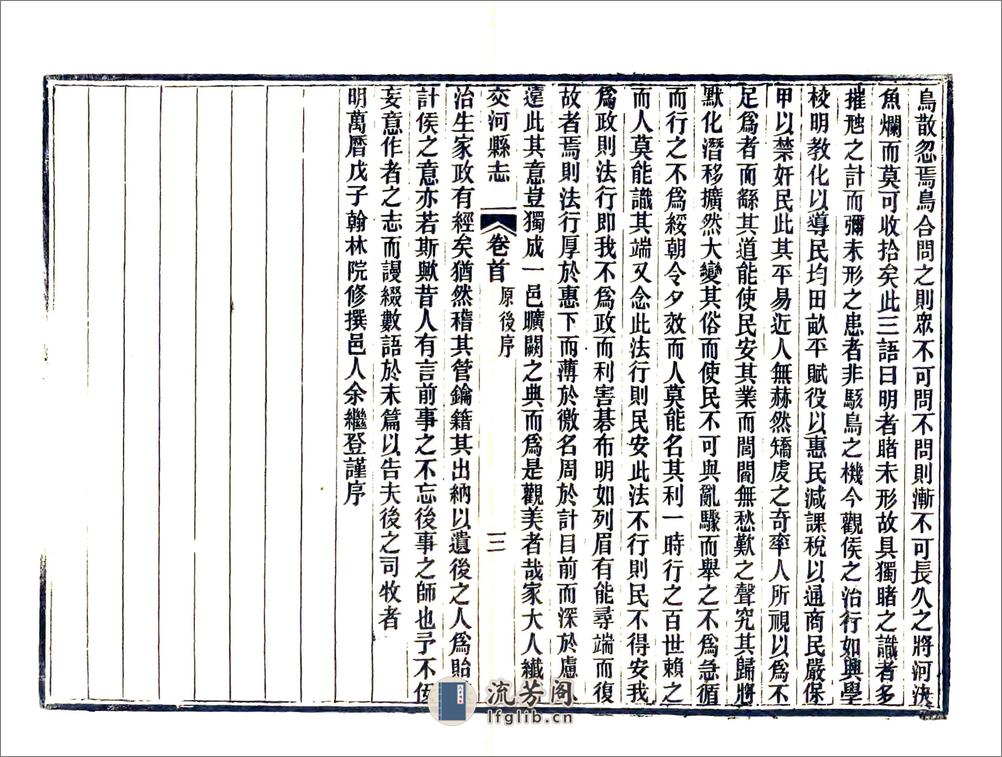 鳥散忽焉鳥合問之則眾不可問不問則漸不可長久之將河決
魚爛而莫可收拾矣此三語曰明者睹未形故具獨睹之識者多
摧虺之計而彌未形之患者非駭鳥之機今觀侯之治行如興學
校明教化以導民均田畝平賦役以惠民減課稅以通商民嚴保
甲以禁奸民此其平易近人無赫然矯虔之奇率人所視以為不
足為者而繇其道能使民安其業而閭閻無愁歎之聲究其歸將
默化潛移擴然大變其俗而使民不可與亂驟而舉之不為急循
而行之不為綏朝令夕效而人莫能名其利一時行之百世賴之
而人莫能識其端又念此法行則民安此法不行則民不得安我
為政則法行即我不為政而利害碁布明如列眉有能尋端而復
故者焉則法行厚於惠下而薄於徼名周於計目前而深於慮
遠此其意豈獨成一邑曠闕之典而為是觀美者哉家大人纖
交河縣志 卷首 原後序 三
治生家政有經矣猶然稽其管鑰籍其出納以遺後之人為貽
計侯之意亦若斯歟昔人有言前事之不忘後事之師也予不佞
妄意作者之志而謾綴數語於末篇以告夫後之司牧者
明萬曆戊子翰林院修撰邑人余繼登謹序
流芳阁
lfglib.cn